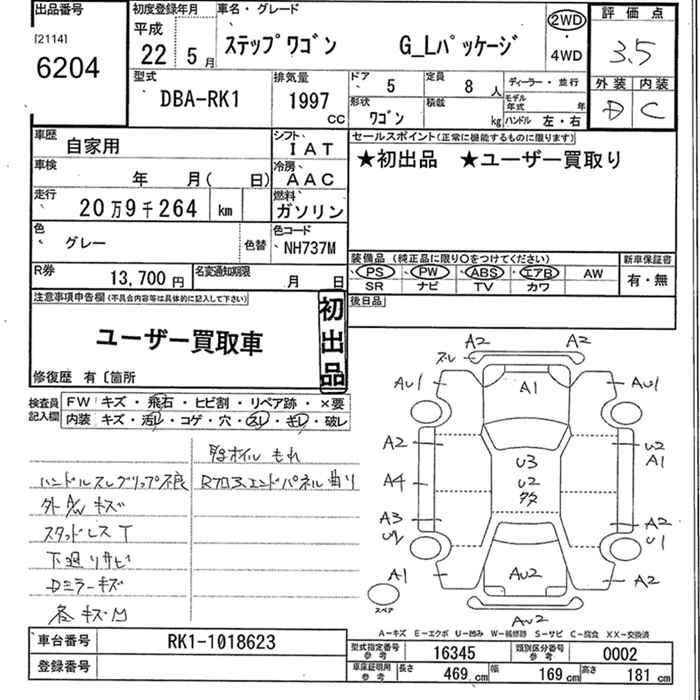 出品番号
[2114]
6204
初度登録年月
平成
22 5月
車名・グレード
ステップワゴン G_Lパッケージ
2WD
4WD
評価点
3.5
外装 内装
D C
型式
DBA-RK1
排気量
1997 CC
ドア 5
定員 8人
形状 ワゴン
積載 kg
ディーラー・並行
モデル年式 年
ハンドル 左・右
車歴 自家用
シフト IAT
車検 年 月( 日)
冷房 AAC
走行 20万9千264 km
燃料 ガソリン
色 グレー
色替
色コード NH737M
R券 13,700円
名変通知期限 月 日
セールスポイント(正常に機能するものに限ります)
★初出品 ★ユーザー買取り
装備品(純正品に限り○をつけてください)
PS PW ABS エアB AW
SR ナビ TV カワ
新車保証書
有・無
後日品
注意事項申告欄(不具合内容等は具体的に記入して下さい)
ユーザー買取車
初出品
修復歴 有〔箇所
検査員記入欄
FW キズ・飛石・ヒビ割・リペア跡・×要
内装 キズ・汚レ・コゲ・穴・スレ・キレ・破レ
ハンドルスレグリップ不良
外A/Wキズ
スタッドレスT
下廻りサビ
Dミラーキズ
各キズM
オイルもれ
Rクロスエンドパネル曲り
A2 A2
スレ
AU1 A1 AU1
A2 U2
A1
A4 U3
U2
A3 A2
U1
A1 AU2 A2
AU2
スペア
A-キズ E-エクボ U-凹み W-補修跡 S-サビ C-腐食 XX-交換済
車台番号 RK1-1018623
登録番号
型式指定番号 参考 16345
類別区分番号 参考 0002
車庫証明用 参考 長さ 469cm 幅 169cm 高さ 181cm